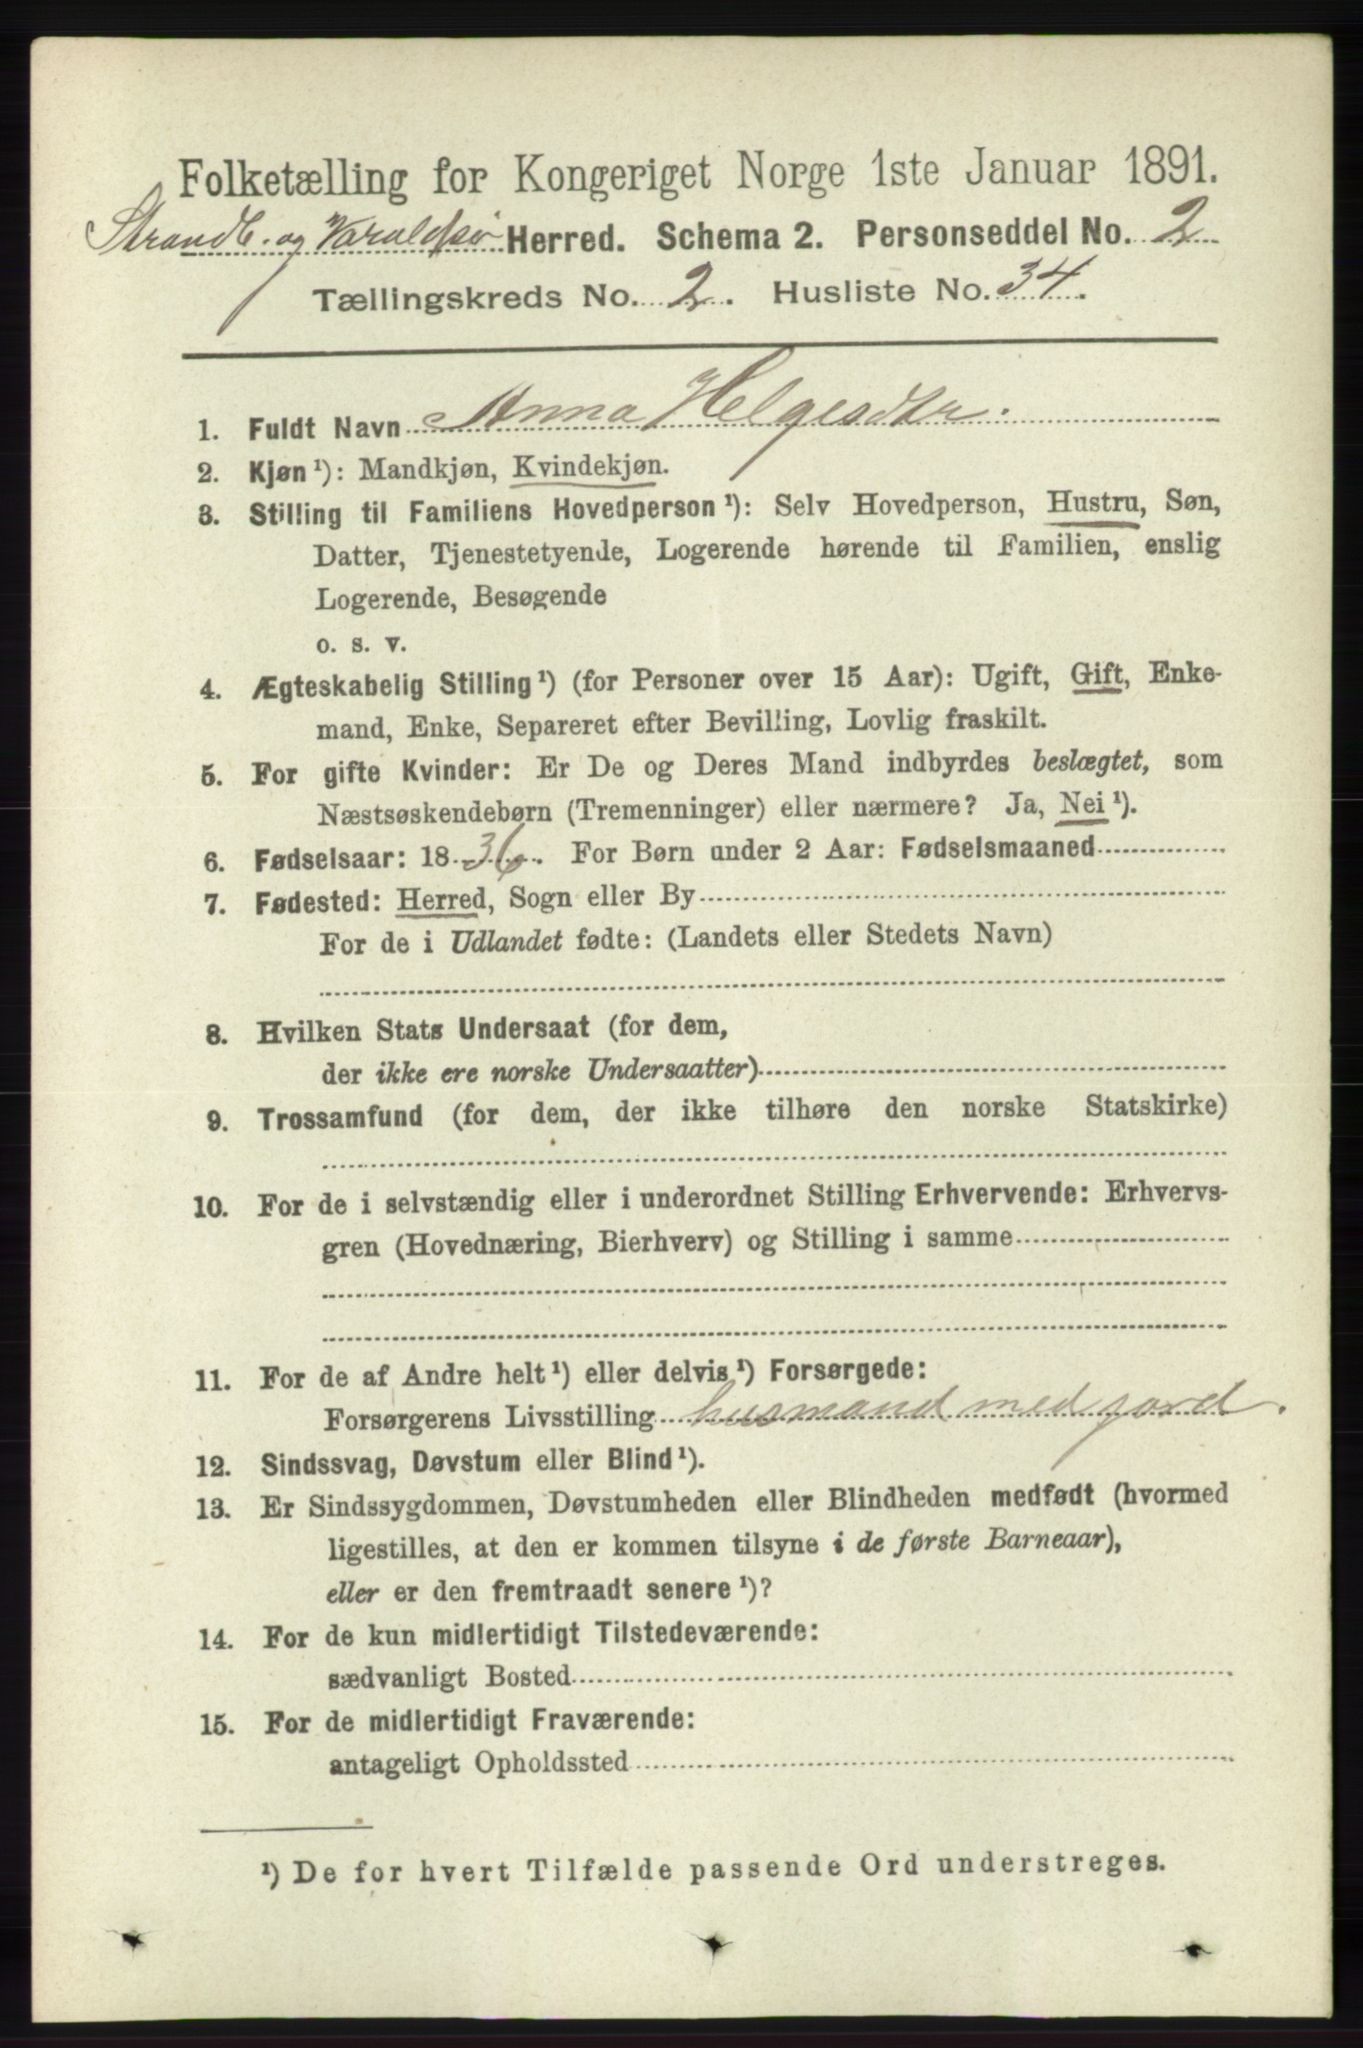 Folketælling for Kongeriget Norge 1ste Januar 1891.
Strandb. og Varaldsø Herred. Schema 2. Personseddel No. 2
Tællingskreds No. 2. Husliste No. 34.
1. Fuldt Navn Anna Helgesdtr.
2. Kjøn ¹): Mandkjøn, Kvindekjøn.
3. Stilling til Familiens Hovedperson ¹): Selv Hovedperson, Hustru, Søn,
Datter, Tjenestetyende, Logerende hørende til Familien, enslig
Logerende, Besøgende
o. s. v.
4. Ægteskabelig Stilling ¹) (for Personer over 15 Aar): Ugift, Gift, Enke-
mand, Enke, Separeret efter Bevilling, Lovlig fraskilt.
5. For gifte Kvinder: Er De og Deres Mand indbyrdes beslægtet, som
Næstsøskendebørn (Tremenninger) eller nærmere? Ja, Nei ¹).
6. Fødselsaar: 1836. For Børn under 2 Aar: Fødselsmaaned
7. Fødested: Herred, Sogn eller By
For de i Udlandet fødte: (Landets eller Stedets Navn)
8. Hvilken Stats Undersaat (for dem,
der ikke ere norske Undersaatter)
9. Trossamfund (for dem, der ikke tilhøre den norske Statskirke)
10. For de i selvstændig eller i underordnet Stilling Erhvervende: Erhvervs-
gren (Hovednæring, Bierhverv) og Stilling i samme
11. For de af Andre helt ¹) eller delvis ¹) Forsørgede:
Forsørgerens Livsstilling husmand med jord.
12. Sindssvag, Døvstum eller Blind ¹).
13. Er Sindssygdommen, Døvstumheden eller Blindheden medfødt (hvormed
ligestilles, at den er kommen tilsyne i de første Barneaar),
eller er den fremtraadt senere ¹)?
14. For de kun midlertidigt Tilstedeværende:
sædvanligt Bosted
15. For de midlertidigt Fraværende:
antageligt Opholdssted
¹) De for hvert Tilfælde passende Ord understreges.